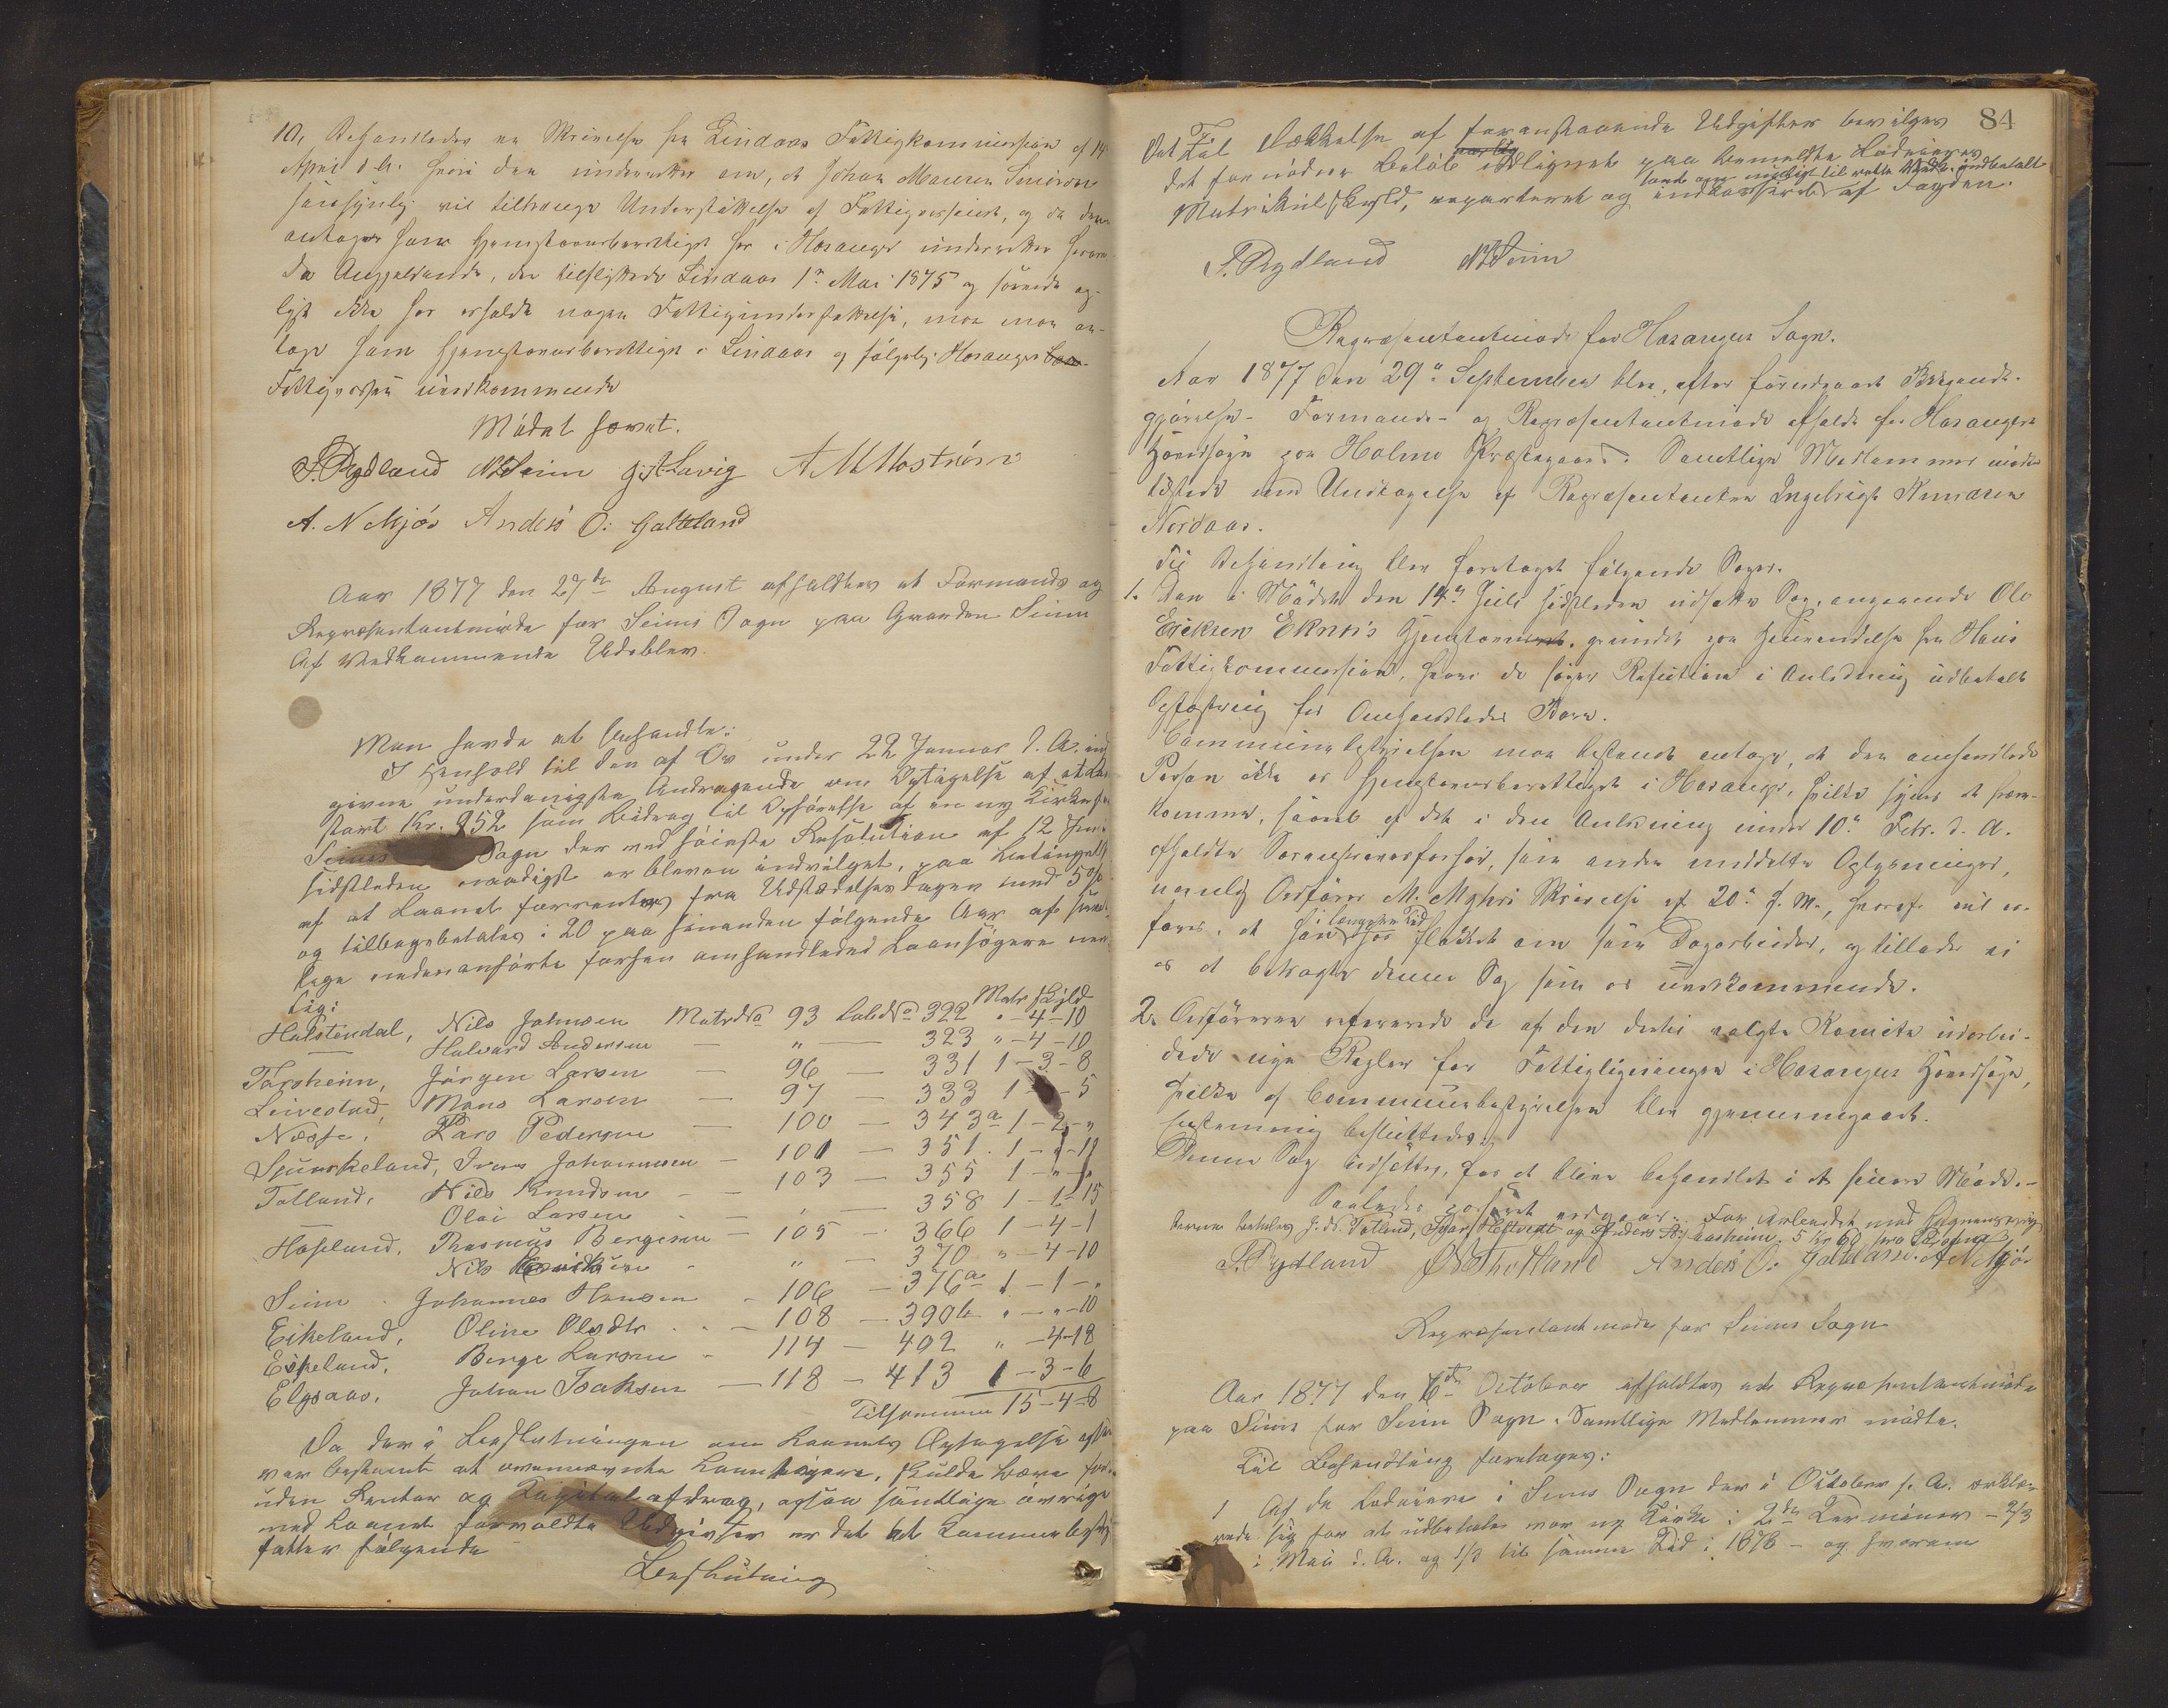 10, Behandledes en Skrivelse fra Lindaas Fattigkommission af 14
April d. A. hvori den underretter om, at Johan Monsen Smione
sandsynlig vil tiltrænge Understøttelse af Fattigvæsenet, og da denne
antages som Hjemstavnsberettiget her i Hosanger underrettes herom
Da Angjeldende, der tilflyttede Lindaas 1ste Mai 1875 og
ligt ikke har erholdt nogen Fattigunderstøttelse, maa man an-
tage ham Hjemstavnsberettiget i Lindaas og følgelig Hosanger
Fattigvæsen uvedkommende
Mødet hævet.
S. Rydland N Seim A M Mostrøm
A. N Mjøs Anders O: Galteland
Aar 1877 den 27de August afholdtes et Formands og
Repræsentantmøde for Seims Sogn paa Gaarden Seim
Af Vedkommende Udeblev.
Man havde at behandle:
I Henhold til den af Os under 22 Januar d. A. ind
givne underdanigste Andragende om Optagelse af et Laan
stort Kr. 952 som Bidrag til Opførelse af en ny Kirke for
Seims Sogn der ved høieste Resolution af 12 Juni
sidstleden naadigst er bleven indvilget, paa Betingelse
af at Laanet forrentes fra Udstædelses Dagen med 5 o/o
og tilbagebetales i 20 paa hinanden følgende Aar af sam-
tlige nedenanførte forhen omhandlede Laansøgere nem-
lig: Matr Skyld
Halstendal, Nils Johnsen Matr No 93 Løb No 322 " - 4 - 10
Halvard Andersen — " — 323 " - 4 - 10
Torsheim, Jørgen Larsen — 96 — 331 1 - 3 - 8
Leivestad, Mons Larsen — 97 — 333 1 - 5
Næsse, Lars Pedersen — 100 — 343a 1 - 2 - "
Spurkeland, Iver Johannesen — 101 — 351 . 1 - 1 - 11
Tolland, Nils Knudsen — 103 — 355 1 - " - "
Olai Larsen — " — 358 1 - 1 - 15
Hopland, Rasmus Bergesen — 105 — 366 1 - 4 - 1
Nils " — 370 " - 4 - 10
Seim Johannes Hansen — 106 — 376a 1 - 1 - "
Eikeland, Oline Olsdtr — 108 — 390b " - " - 10
Eskeland, Berge Larsen — 114 — 402 " - 4 - 18
Elgsaas, Johan Isaksen — 118 — 413 1 - 3 - 6
Tilsammen 15 - 4 - 8
Da der i Beslutningen om Laanets Optagelse
var bestemt at ovennævnte Laansøgere, skulde bære for-
uden Renter og Kapitalafdrag, ogsaa samtlige øvrige
med Laanet forvoldte Udgivter er det at Kommunebesty
fatter følgende
Beslutning
84
Det Til Dækkelse af foranstaaende Udgifter bevilges
det fornødne Beløb udlignet paa bemeldte Lodeieres
samt om muligt til rette Vedk. indbetalt
Matrikulskyld, repartered og indkasseret af Fogden.
S. Rydland N Seim
Repræsentantmøde for Hosanger Sogn.
Aar 1877 den 29de September blev, efter forudgaaet Bekjendt-
gjørelse - Formands- og Repræsentantmøde afholdt for Hosangers
Hovedsogn paa Holme Præstegaard. Samtlige Medlemmer vare
tilstede med Undtagelse af Repræsentanten Ingebrigt Knudsen
Nordaas.
Til Behandling blev foretaget følgende Sager.
1. Den i Mødet den 14de Juli sidstleden udsatte Sag, angaaende Ole
Eriksen Eknes's Hjemstavn, grundet paa Henvendelse fra Haus
Fattigkommission, hvori de søger Refusion i Anledning udbetalt
Opfostring for Omhandledes Barn.
Communebestyrelsen maa bestemt antage, at den omhandlede
Person ikke er Hjemstavnsberettiget i Hosanger, hvilket synes at frem-
komme, saavel af det i den Anledning under 10de Febr. d. A.
afholdte Forsørgelsesforhør, som anden meddelte Oplysninger,
nemlig Ordfører M. Myhrs Skrivelse af 20de f. M., hvoraf vil er-
fares, at han i længere Tid har flakket om som Dagarbeider, og tillader vi
os at betragte denne Sag som os uvedkommende.
2. Ordføreren refererede de af den dertil valgte Komite udarbei-
dede nye Regler for Fattigligningen i Hosanger Hovedsogn,
hvilke af Communebestyrelsen blev gjennemgaaet.
Enstemmig besluttedes:
Denne Sag udsættes, for at blive behandlet i et senere Møde.-
Saaledes passeret vedgaaes. For Arbeidet med
denne betales J. N. Totland, Ivar Heltvedt og Anders N. Aasheim. 5 Kr 60
S. Rydland Ø Thotland Anders O: Galteland A N Mjøs
Repræsentantmøde for Seims Sogn
Aar 1877 den 6te October afholdtes et Repræsentantmøde
paa Seim for Seim Sogn. Samtlige Medlemmer mødte.
Til Behandling foretages:
1 Af de Lodeiere i Seims Sogn der i Oktober f. A. erklæ-
rede sig for at udbetale vor ny Kirke i 2de Terminer - 2/3
i Mai d. A. og 1/3 til samme Tid i 1878 - og hvorom